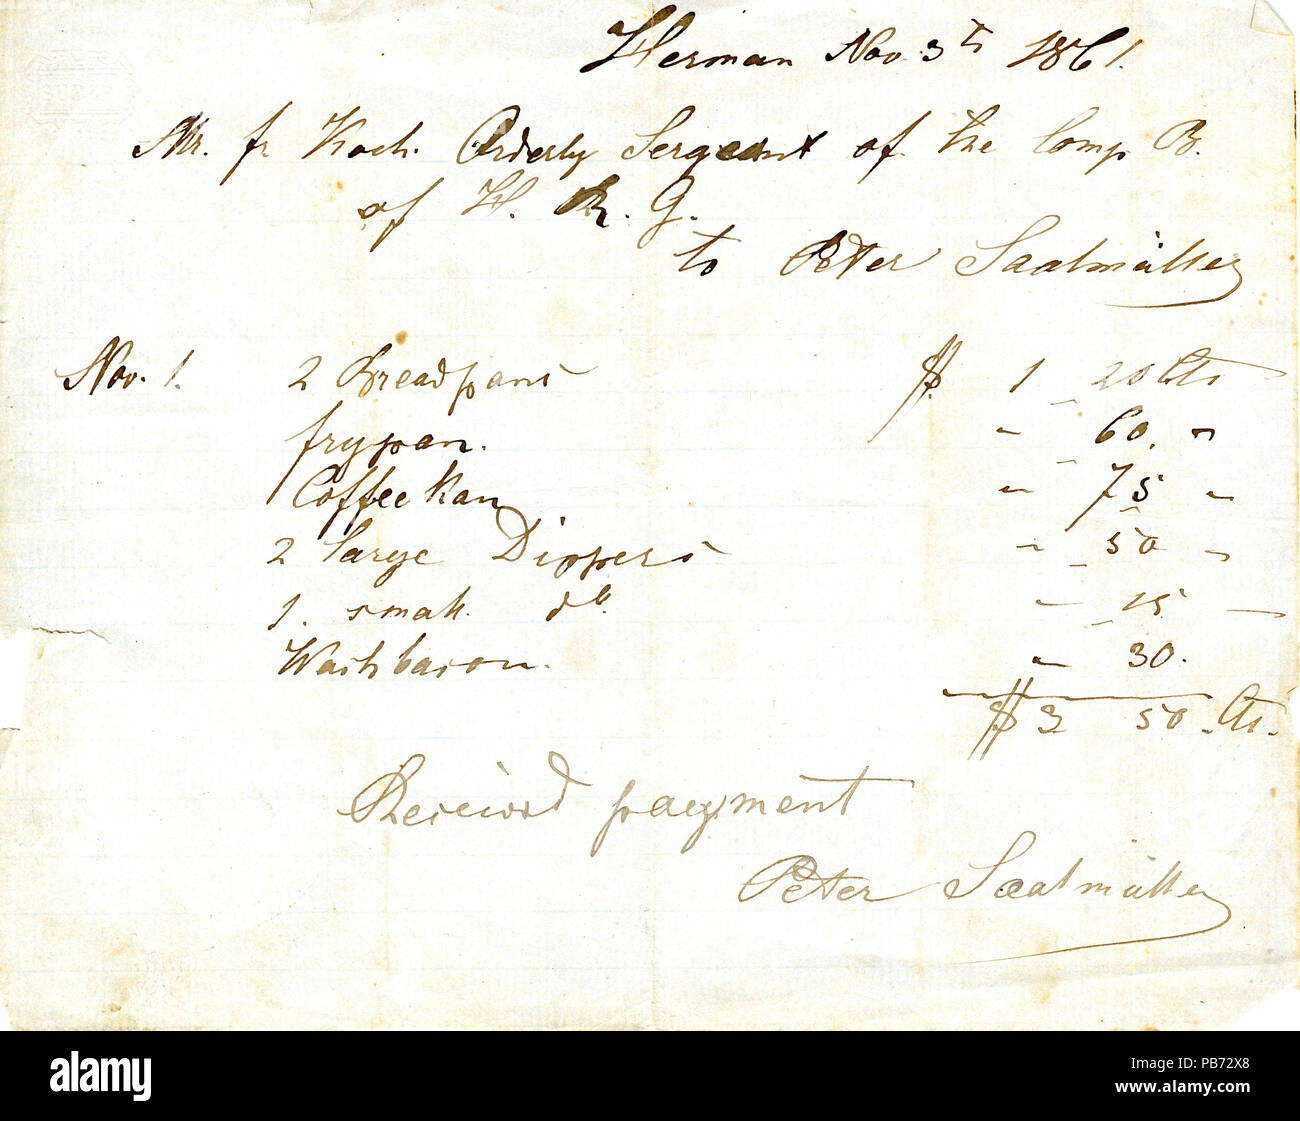 Herman Nov. 3th 1861.
Mr. fr Koch. Orderly Sergeant of the Comp B.
of H. R. G.
to Peter Saalmüller
Nov. 1. 2 Breadpans $. 1 20 Cts
frypan. " 60. "
Coffee Kan " 75 "
2 large Dippers " 50 "
1. small do. " 15 "
Washbason. " 30.
$ 3 50. Cts.
Received payment
Peter Saalmüller
a
alamy
alamy
Image ID: PB72X8
www.alamy.com